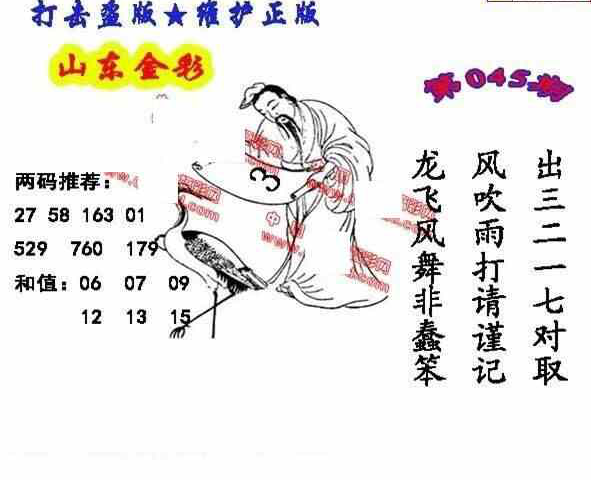 打击盗版★维护正版
山东金彩
第045期
两码推荐：
27 58 163 01
529 760 179
和值：06 07 09
12 13 15
3
出三二一七对取
风吹雨打请谨记
龙飞风舞非蠢笨